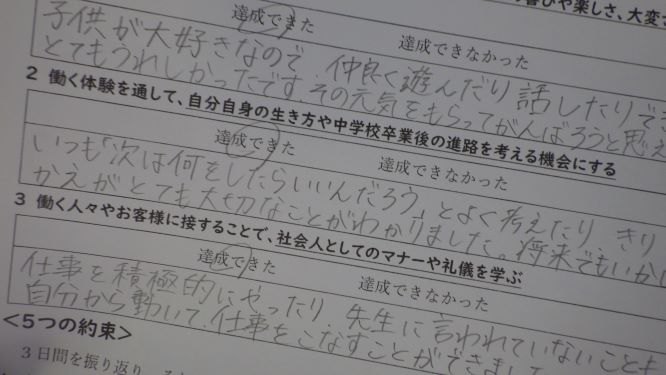 びや楽しさ、大変さ
達成できた 達成できなかった
子供が大好きなので、仲良く遊んだり話したりでき
とてもうれしかったです。その元気をもらってがんばろうと思え
2 働く体験を通して、自分自身の生き方や中学校卒業後の進路を考える機会にする
達成できた 達成できなかった
いつも「次は何をしたらいいんだろう」とよく考えたり、きり
かえがとても大切なことがわかりました。将来でもいかし
3 働く人々やお客様に接することで、社会人としてのマナーや礼儀を学ぶ
達成できた 達成できなかった
仕事を積極的にやったり、先生に言われていないことも
自分から動いて、仕事をこなすことができまし
<5つの約束>
3日間を振り返り、